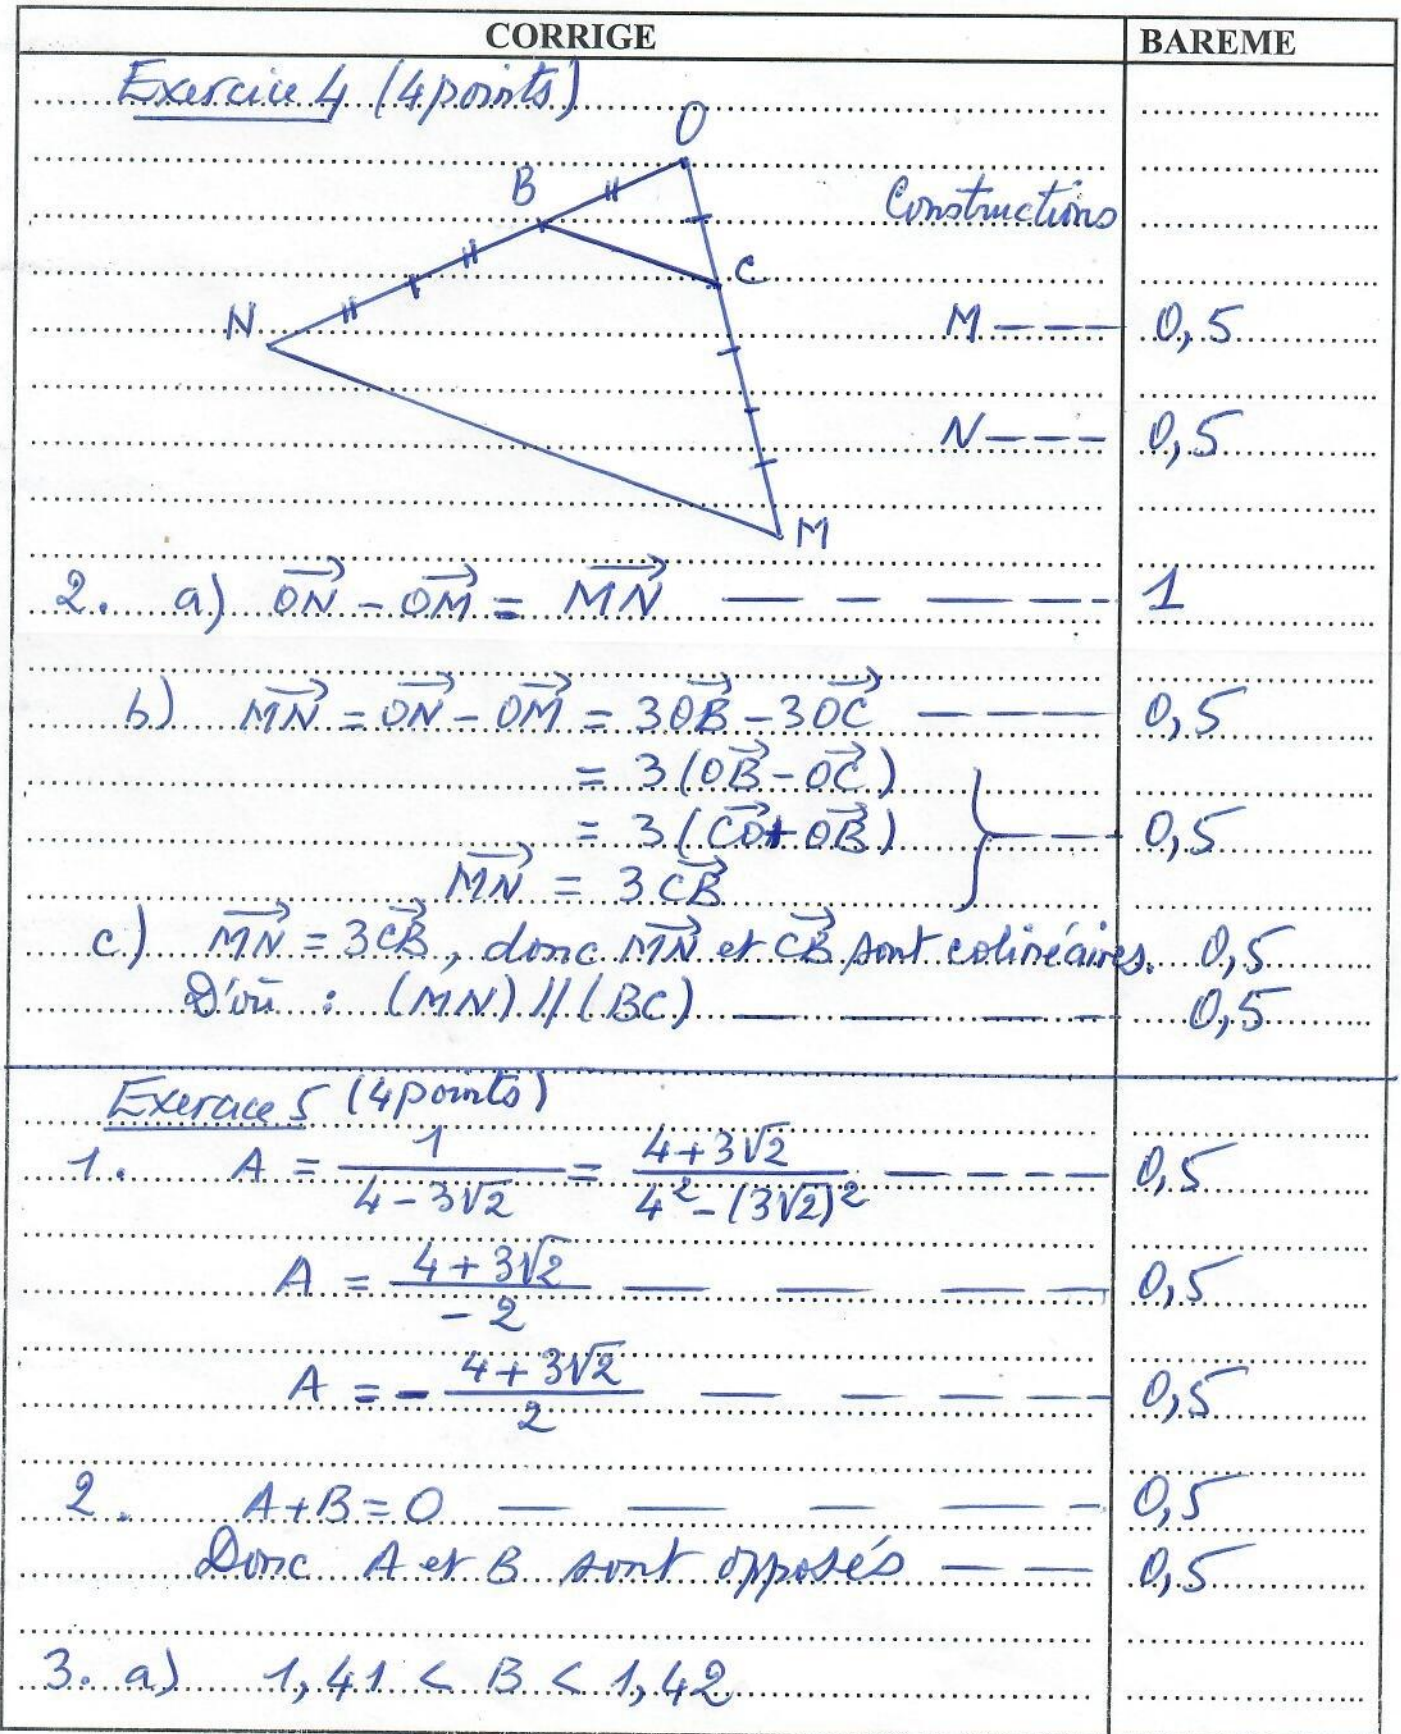 CORRIGE BAREME
Exercice 4 (4 points)
O
B
Constructions
C
N
M - - - - 0,5
N - - - 0,5
M
2. a) \overrightarrow{ON} - \overrightarrow{OM} = \overrightarrow{MN} — - — — - 1
b) \overrightarrow{MN} = \overrightarrow{ON} - \overrightarrow{OM} = 3\overrightarrow{OB} - 3\overrightarrow{OC} — — — — 0,5
= 3(\overrightarrow{OB} - \overrightarrow{OC})
= 3(\overrightarrow{CO} + \overrightarrow{OB}) — — 0,5
\overrightarrow{MN} = 3\overrightarrow{CB}
c) \overrightarrow{MN} = 3\overrightarrow{CB}, donc \overrightarrow{MN} et \overrightarrow{CB} sont colinéaires. 0,5
D'où : (MN) // (BC) — — — - 0,5
Exercice 5 (4 points)
1. A = \frac{1}{4-3√2} = \frac{4+3√2}{4²-(3√2)²} — — — — 0,5
A = \frac{4+3√2}{-2} — — — — 0,5
A = - \frac{4+3√2}{2} — — — — 0,5
2. A+B=0 — — — — - 0,5
Donc A et B sont opposés — — 0,5
3. a) 1,41 < B < 1,42